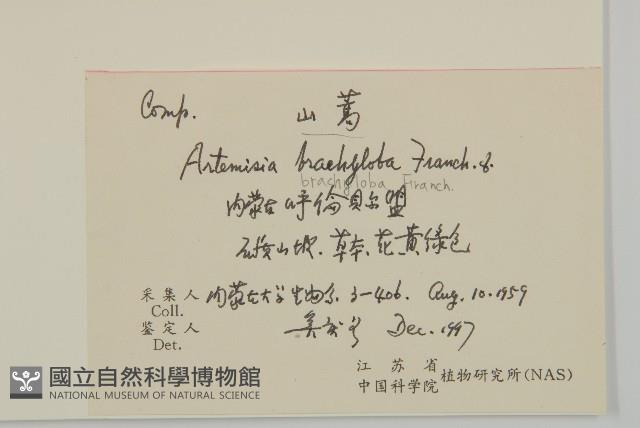 Comp. 山蒿
Artemisia brachyloba Franch.
brachyloba Franch.
内蒙古呼伦贝尔盟
石质山坡. 草本, 花黄绿色
采集人 内蒙古大学生物系 3-406. Aug. 10. 1959
Coll.
鉴定人 Dec. 1997
Det.
江苏省
中国科学院植物研究所(NAS)
國立自然科學博物館
NATIONAL MUSEUM OF NATURAL SCIENCE